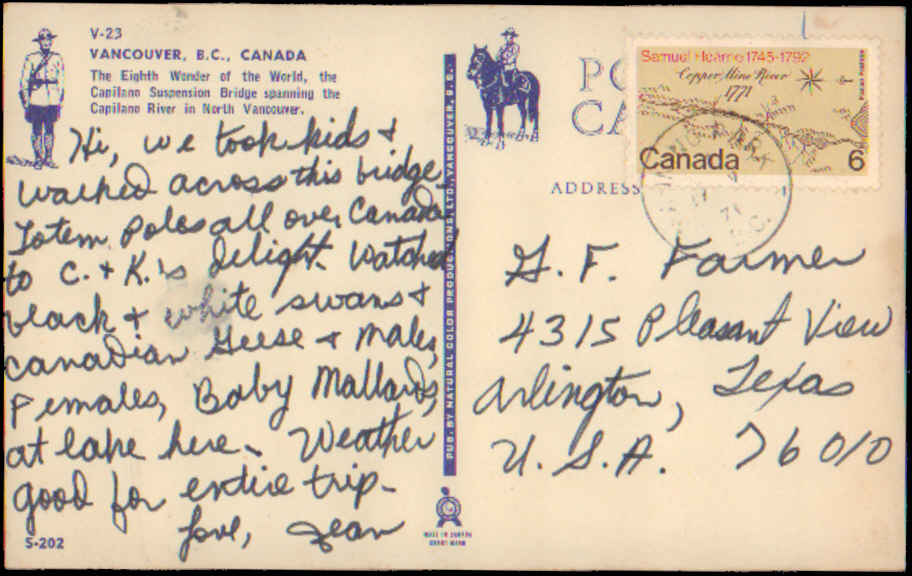 V-23
VANCOUVER, B.C., CANADA
The Eighth Wonder of the World, the
Capilano Suspension Bridge spanning the
Capilano River in North Vancouver.
Hi, we took kids &
walked across this bridge.
Totem Poles all over Canada
to C. & K.'s delight. Watched
black & white swans &
Canadian Geese & males,
Females, Baby Mallards,
at lake here. Weather
good for entire trip-
Love, Jean
S-202
PUB. BY NATURAL COLOR PRODUCTIONS, LTD., VANCOUVER, B.C.
PO
CA
ADDRESS
Samuel Hearne 1745-1792
Copper Mine River
1771
Canada 6
G. F. Farmer
4315 Pleasant View
Arlington, Texas
U.S.A. 76010